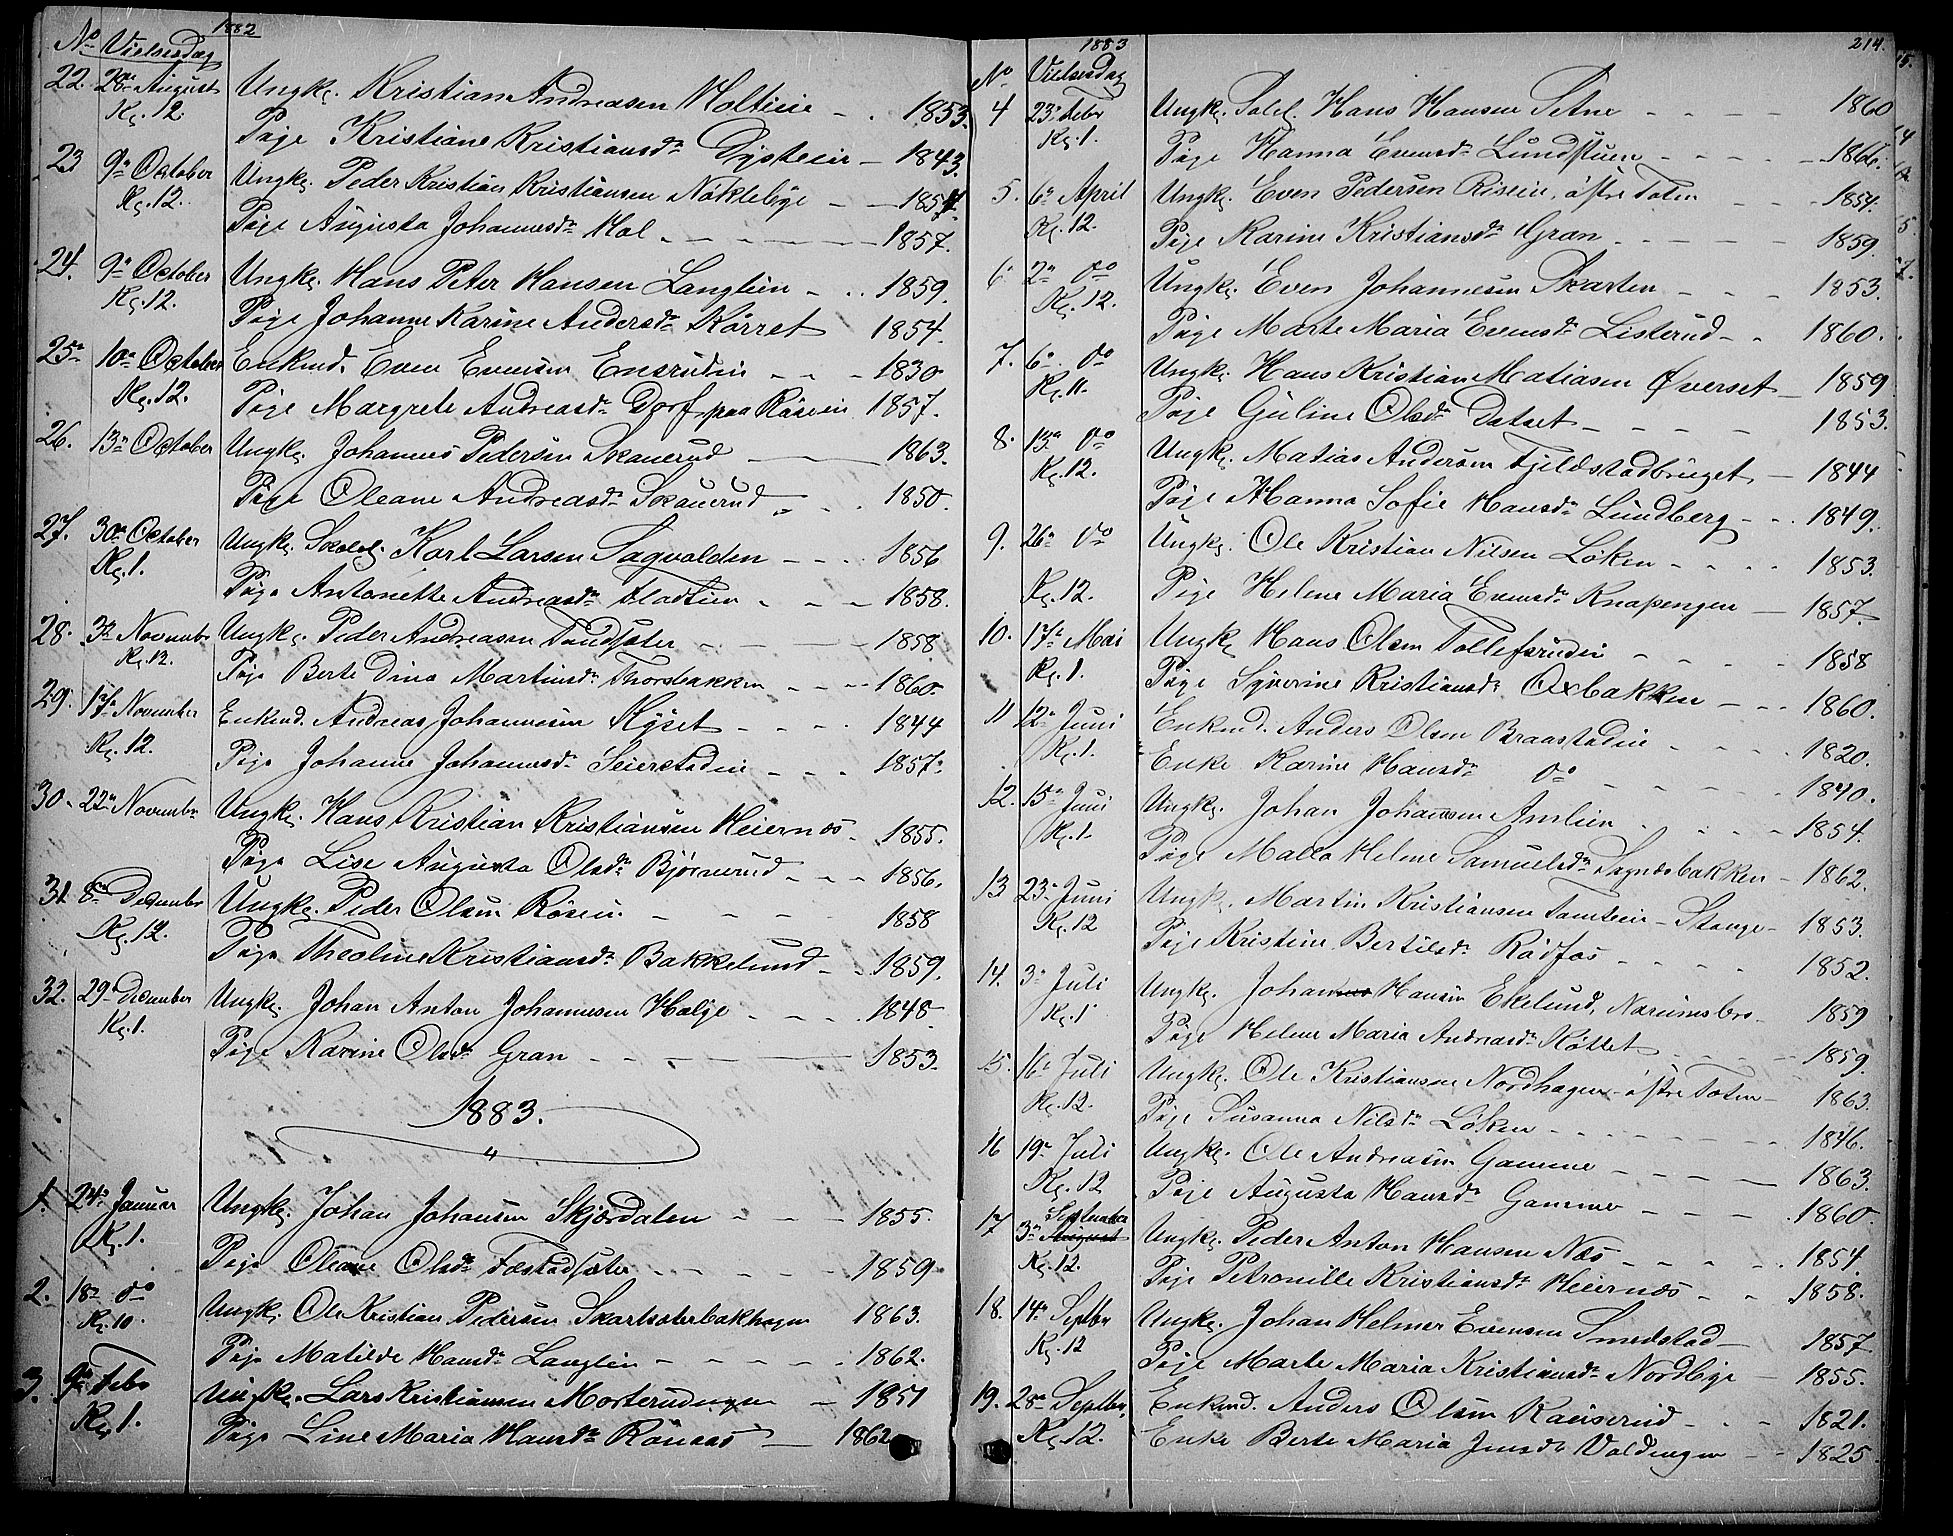 1882
No Vielsesdag
22. August Ungk. Kristian Andreasen 1853.
Kl. 12. Pige Kristiane Kristiansdr 1843.
23 9de October Ungk. Peder Kristian Kristiansen Nøklebye 1854.
Kl. 12. Pige Augusta Johannesdr Hol 1857.
24. 9de October Ungk. Hans Peter Hansen Langlien 1859.
Kl. 12. Pige Johanne Karine Andersdr Kørret 1854.
25 10de October Enkmd. Even Evensen Ensrudeie 1830
Kl. 12. Pige Margrete Andreasdr Dorf paa Røseie 1857.
26. 13de October Ungk. Johannes Pedersen Skanerud 1863.
Pige Oleane Andreasdr Skanerud 1850.
27. 30de October Ungk. Karl Larsen Sagvolden 1856
Kl. 1. Pige Antonette Andreasdr 1858.
28. 3de Novembr Ungk. Peder Andreasen 1858
Kl. 12. Pige Berte Dina Martinsdr Thorsbakken 1860.
29. 17de November Enkmd. Andreas Johannesen Hyset 1844
Kl. 12. Pige Johanne Johannesdr Seierstadeie 1857.
30. 22de Novembr Ungk. Hans Kristian Kristiansen Heiernæs 1855.
Pige Lise Augusta Olsdr Bjørnerud 1856.
31. 8de Decembr Ungk. Peder Olsen Røseie 1858
Kl. 12. Pige Theoline Kristiansdr Bakkelund 1859.
32. 29de December Ungk. Johan Anton Johannesen Helge 1848
Kl. 1. Pige Karine Olsdr Gran 1853.
1883.
1. 24de Januar Ungk. Johan Johansen Skjærdalen 1855.
Kl. 1. Pige Oleane Olsdr 1859
2. 18de do Ungk. Ole Kristian Pedersen 1863.
Kl. 10. Pige Matilde Hansdr Langlien 1862.
3. 9de Febr Ungk. Lars Kristiansen Morterudengen 1851
Kl. 1. Pige Line Maria Hansdr Rønaas 1862
1883
214.
No Vielsesdag
4 23de Febr Ungk. Hans Hansen Setne 1860
Kl. 1. Pige Hanna Evensdr Lundstuen 1866.
5. 6te April Ungk. Even Pedersen Riseie, østre Toten 1854.
Kl. 12. Pige Karine Kristiansdr Gran 1859.
6 2den do Ungk. Even Johannesen Skarten 1853.
Kl. 12. Pige Marte Maria Evensdr Listerud 1860.
7. 6te do Ungk. Hans Kristian Matiasen Øverset 1859
Kl. 11. Pige Guline Olsdr Dalset 1853.
8. 13de do Ungk. Matias Andersen Fjeldstadbruget 1844
Kl. 12. Pige Hanna Sofie Hansdr Lundberg 1849.
9. 26de do Ungk. Ole Kristian Nilsen Løken 1853.
Kl. 12. Pige Helene Maria Evensdr Knapengen 1857.
10. 17de Mai Ungk. Hans Olsen Tollefsrudeie 1858
Kl. 1. Pige Syverine Kristiansdr Oxbakken 1860.
11 12te Juni Enkmd. Anders Olsen Braastadeie 1820.
Kl. 1. Enke Karine Hansdr do 1840.
12. 15de Juni Ungk. Johan Johansen Amlien 1854.
Kl. 1. Pige Malla Helene Samuelsdr Sognesbakken 1862.
13 23de Juni Ungk. Martin Kristiansen - Stange 1853.
Kl. 12 Pige Kristine Bertilsdr Rødfos 1852.
14. 3de Juli Ungk. Johannes Hansen Ekelund, Narumsbro 1859
Kl. 1 Pige Helene Maria Andreasdr Køllet 1859.
15. 16de Juli Ungk. Ole Kristiansen Nordhagen - østre Toten 1863.
Kl. 12. Pige Susanna Nilsdr Løken 1846.
16 19de Juli Ungk. Ole Andreasen Gamme 1863.
Kl. 12 Pige Augusta Hansdr Gamme 1860.
17 3de September August Ungk. Peder Anton Hansen Næs 1854.
Kl. 12. Pige Petronille Kristiansdr Heiernæs 1858.
18. 14de Septbr Ungk. Johan Helmer Evensen Smedstad 1857
Kl. 12 Pige Marte Maria Kristiansdr Nordbye 1855.
19. 28de Septbr. Enkmd. Anders Olsen Kauserud 1821.
Kl. 12. Enke Berte Maria Jensdr Voldengen 1825.